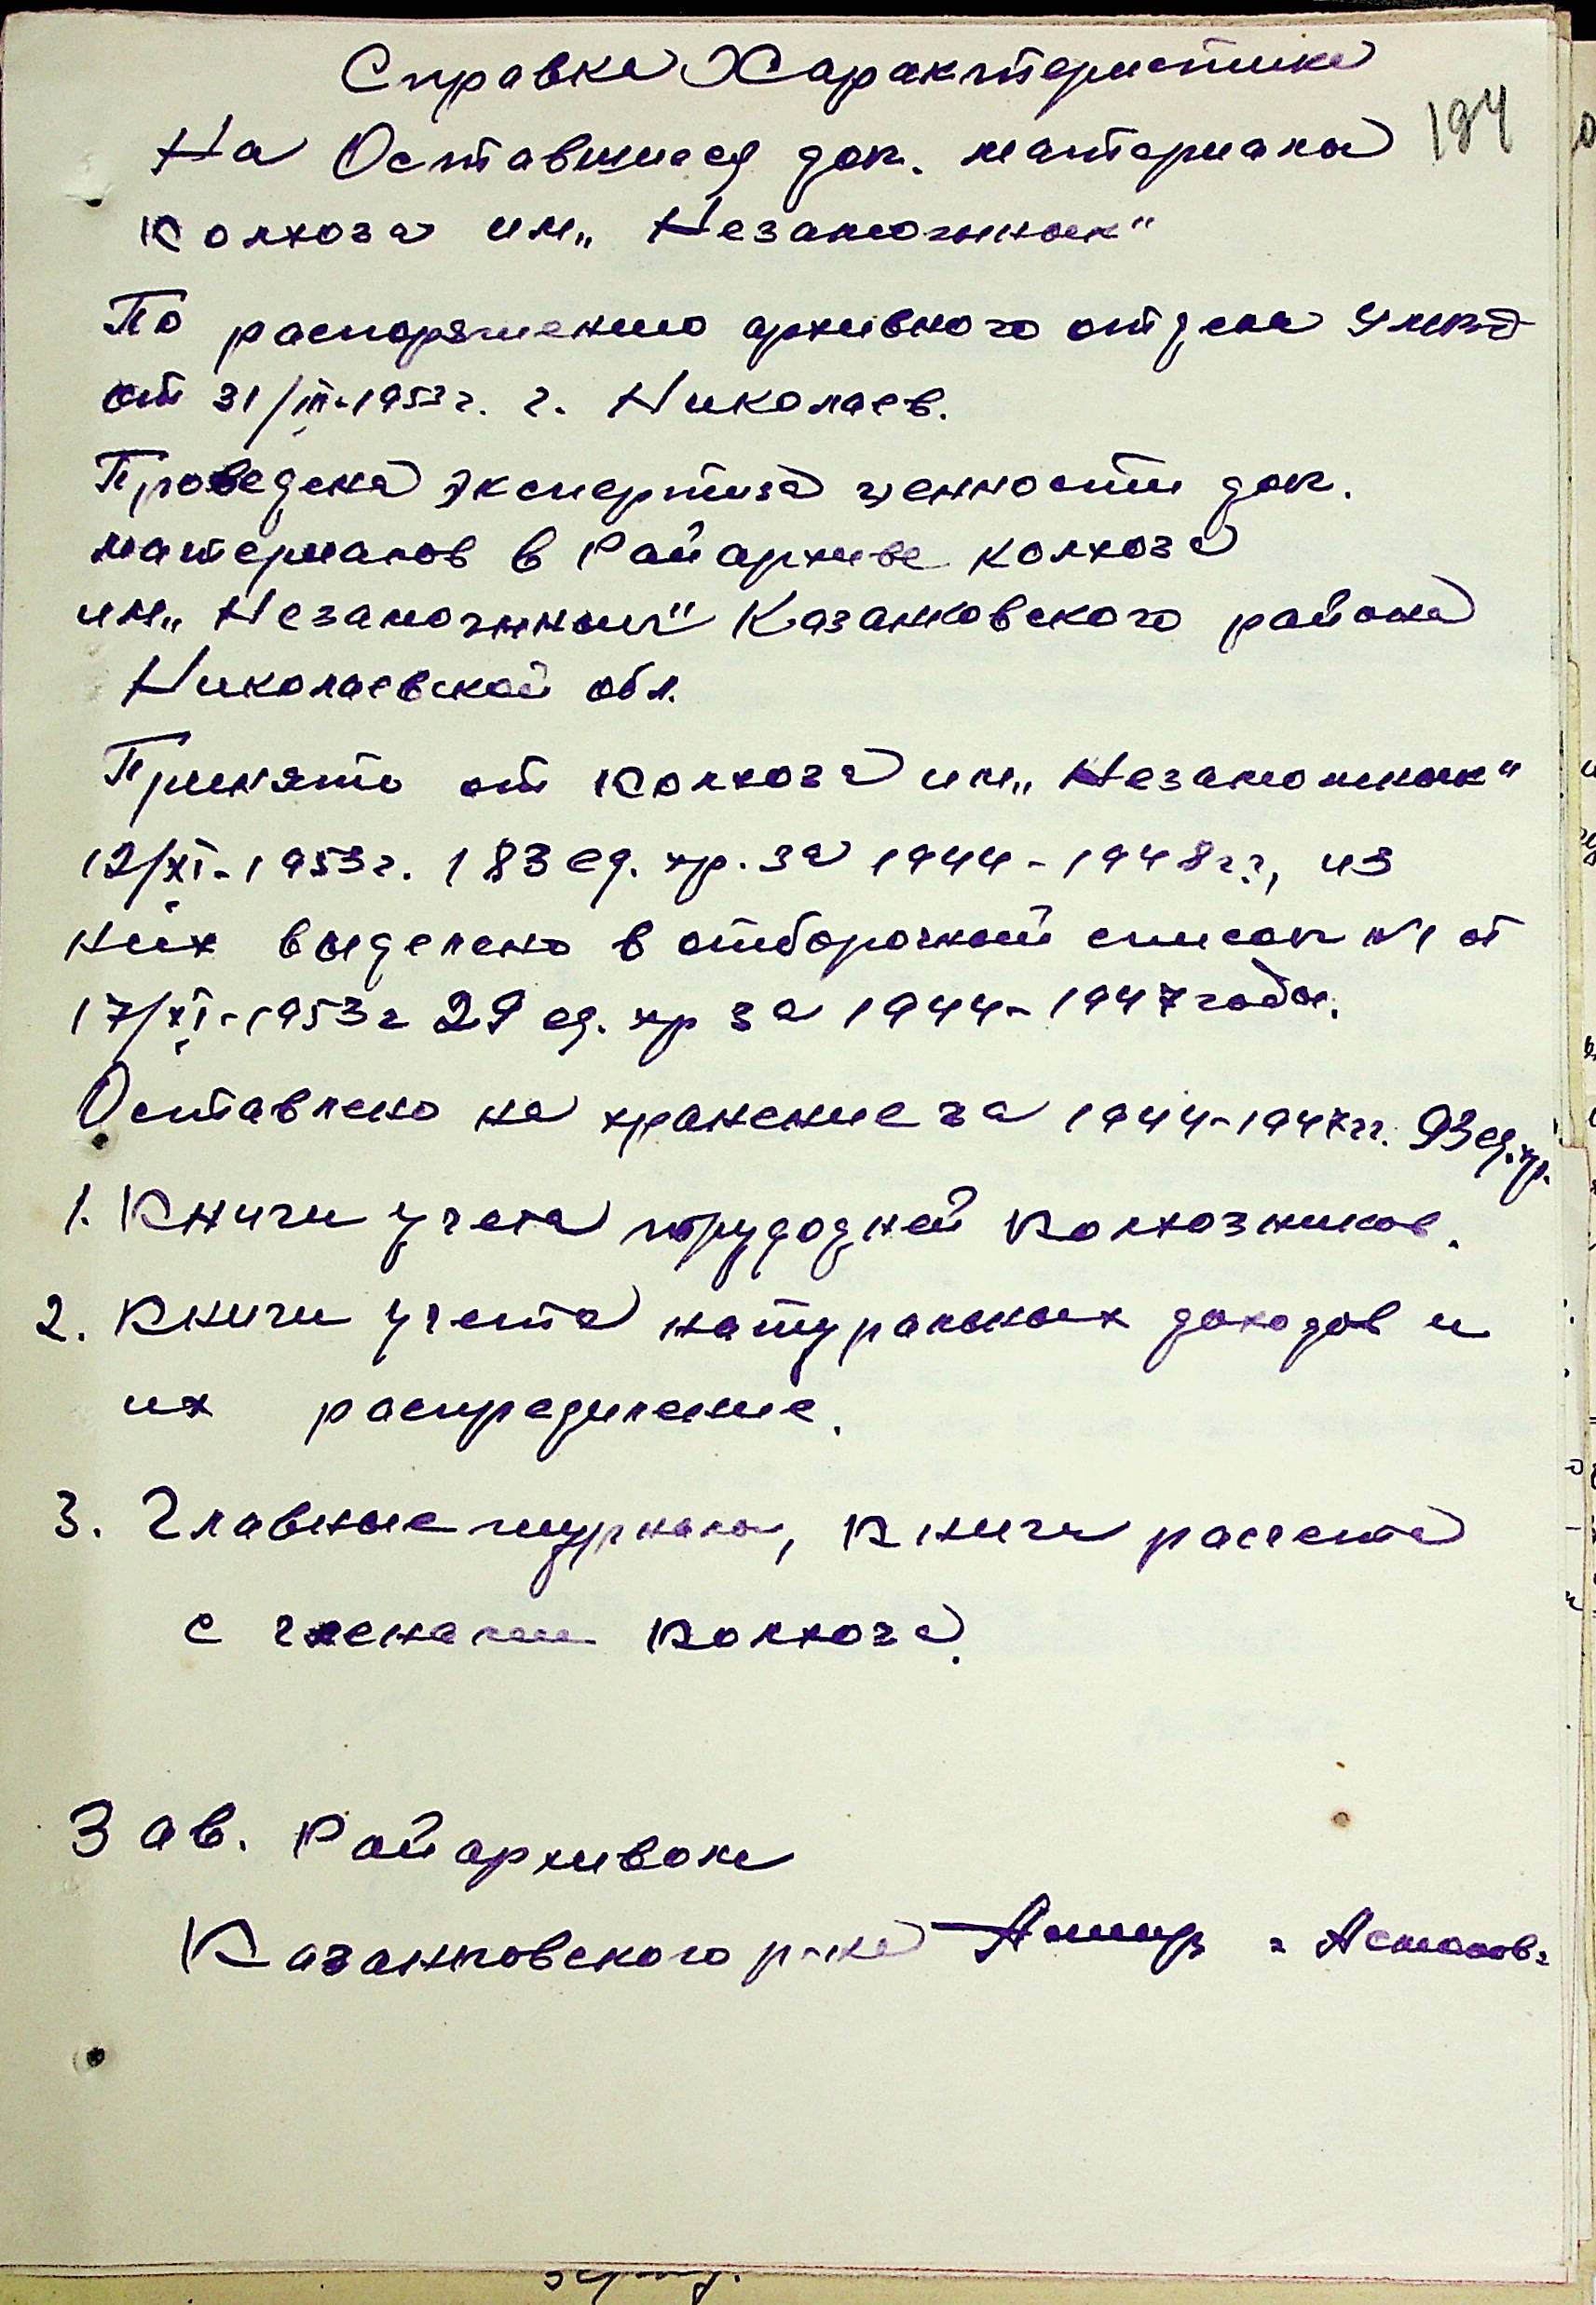 Справка Характеристика
184
На Оставшиеся док. материала
колхоза им „Незаможнык"
По распоряжению архивного отдела УМВД
от 31/III-1953 г. г. Николаев.
Проведена экспертиза ценности док.
материалов в Райархиве колхоза
им „Незаможнык" Казанковского района
Николаевской обл.
Принято от колхоза им „Незаможнык"
12/XI-1953 г. 183 ед. хр. за 1944-1948 г.г., из
них выделено в отборочный список №1 от
17/XI-1953 г 29 ед. хр за 1944-1947 годы.
Оставлено на хранение за 1944-1947 гг. 93 ед. хр.
1. Книги учета трудодней колхозников.
2. Книги учета натуральных доходов и
их распредиление.
3. Главные журналы, книги расчета
с членами колхоза.
Зав. Райархивом
Казанковского р-на